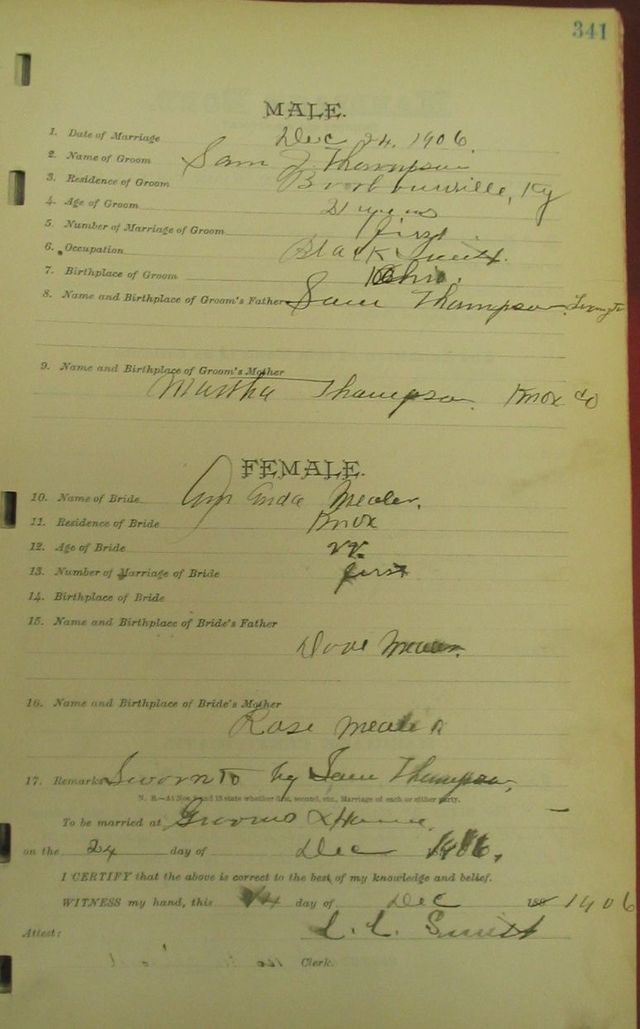 341
MALE.
1. Date of Marriage Dec 24, 1906.
2. Name of Groom Sam J Thompson
3. Residence of Groom Barbourville, Ky
4. Age of Groom 21 years
5. Number of Marriage of Groom first
6. Occupation Black Smith.
7. Birthplace of Groom Ohio.
8. Name and Birthplace of Groom's Father Sam Thompson
9. Name and Birthplace of Groom's Mother
Martha Thompson. Knox Co
FEMALE.
10. Name of Bride Mealer.
11. Residence of Bride Knox
12. Age of Bride 22.
13. Number of Marriage of Bride first
14. Birthplace of Bride
15. Name and Birthplace of Bride's Father
Dove Mealer.
16. Name and Birthplace of Bride's Mother
Rose Mealer
17. Remarks Sworn to by Sam Thompson,
N. B.—At Nos. 5 and 13 state whether first, second, etc., Marriage of each or either party.
To be married at Grooms Home,
on the 24 day of Dec 1906.
I CERTIFY that the above is correct to the best of my knowledge and belief.
WITNESS my hand, this 24 day of Dec 1906
Attest: Smith
Clerk.